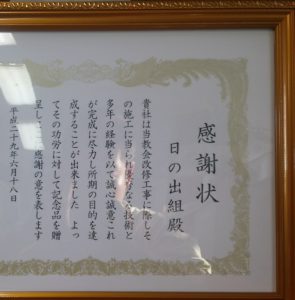 感謝状
日の出組殿
貴社は当教会改修工事に際しそ
の施工に当られ優秀なる技術と
多年の経験を以て誠心誠意これ
が完成に尽力し所期の目的を達
成することが出来ました よっ
てその功労に対して記念品を贈
呈しここに感謝の意を表します
平成二十九年六月十八日